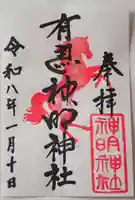 奉拝
神明神社
神明神社
令和八年一月十日